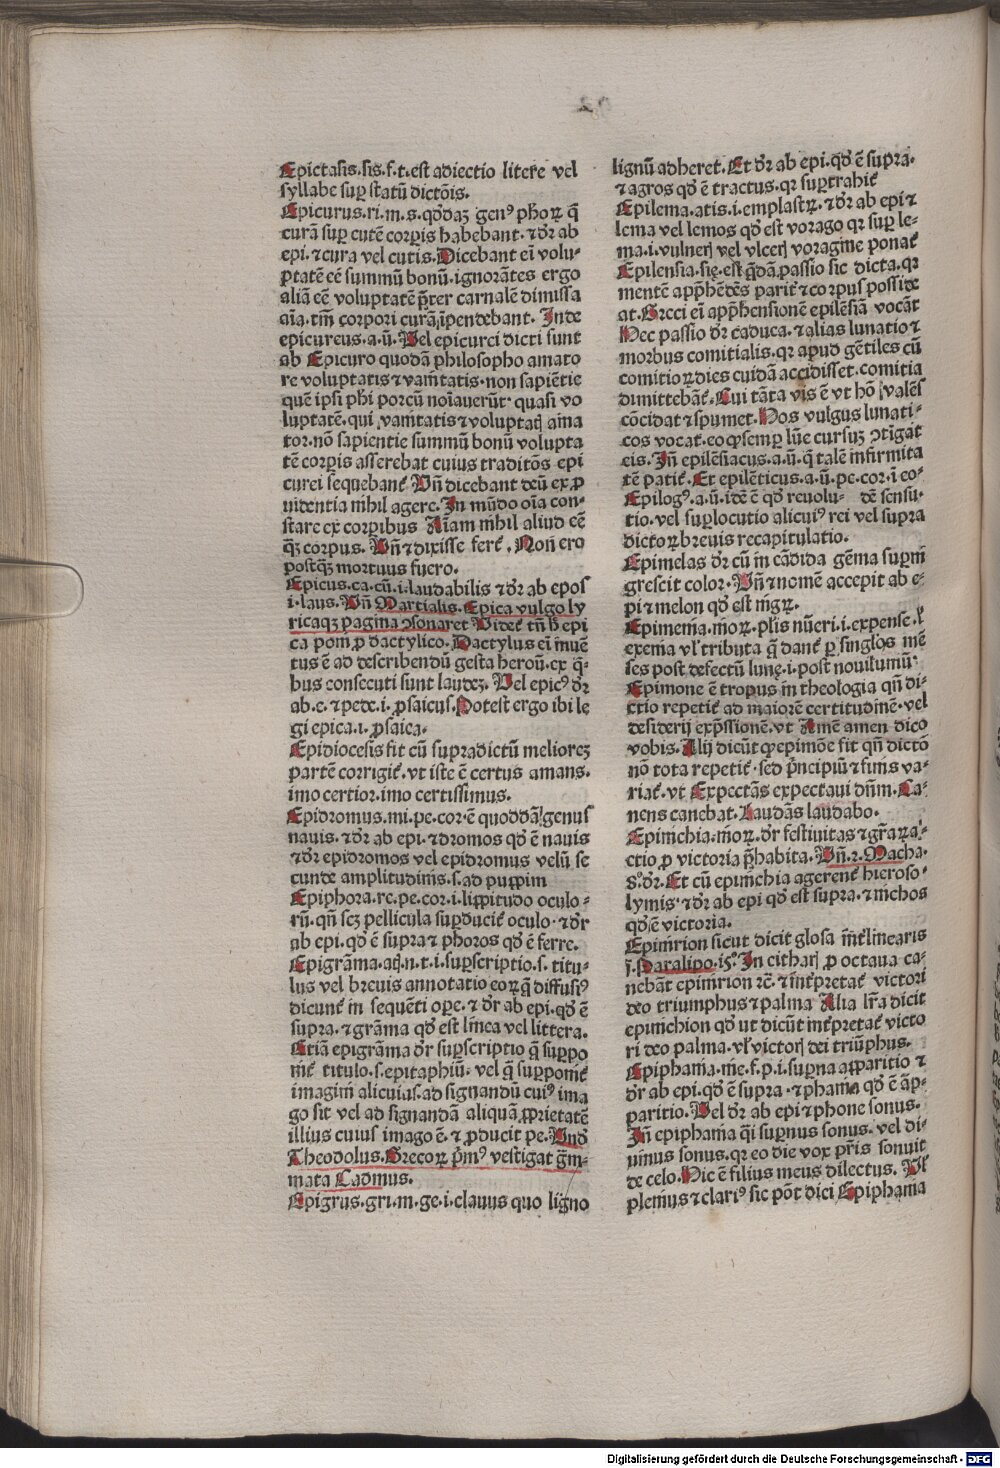 Epictasis.sis.f.t.est adiectio litere vel
syllabe suꝑ statū dictōis.
Epicurus.ri.m.s.qͦdaꝫ genꝰ phoꝝ q̄
curā suꝑ cutē corꝑis habebant.⁊ dr̄ ab
epi.⁊ cura vel cutis.Dicebant eī volu⸗
ptatē eē summū bonū.ignorātes ergo
aliā eē voluptatē p̄ter carnalē dimissa
aīa.tm̄ corpori curā īpendebant. Inde
epicureus.a.ū.Vel epicurei dicti sunt
ab Epicuro quodā philosopho amato
re voluptatis ⁊ vanitatis.non sapiētie
quē ipsi phi porcū noīauerūt quasi vo
luptatē.qui vanitatis ⁊ voluptatꝭ ama
tor.nō sapientie summū bonū volupta
tē corꝑis asserebat cuius traditōs epi
curei sequebant̄ Vn̄ dicebant deū ex ꝓ
uidentia nihil agere.In mūdo oīa con⸗
stare ex corꝑibus Aīam nihil aliud eē
qͣꝫ corpus. Vn̄ ⁊ dixisse fert̄. Non ero
postqͣꝫ mortuus fuero.
Epicus.ca.cū.i.laudabilis ⁊ dr̄ ab epos
.i.laus.Vn̄ Martialis.Epica vulgo ly
ricaqꝫ pagina ↄsonaret Videt̄ tn̄ ꝙ epi
ca ponit̄ ꝓ dactylico.Dactylus eī inuē
tus ē ad describendū gesta heroū.ex q̄⸗
bus consecuti sunt laudeꝫ.Vel epicꝰ dr̄
ab.e.⁊ pede.i.ꝓsaicus.Potest ergo ibi le
gi epica.i.ꝓsaica.
Epidiocesis fit cū supradictū melioreꝫ
partē corrigit̄.vt iste ē certus amans.
imo certior.imo certissimus.
Epidromus.mi.pe.cor.ē quoddā genus
nauis.⁊ dr̄ ab epi.⁊ dromos qd̄ ē nauis
⁊ dr̄ epidromos vel epidromus velū se
cunde amplitudinis.s.ad puppim
Epiphora.re.pe.cor.i.lippitudo oculo⸗
rū.qn̄ scꝫ pellicula suꝑducit̄ oculo.⁊ dr̄
ab epi.qd̄ ē supra ⁊ phoros qd̄ ē ferre.
Epigrāma.atꝭ.n.t.i.suꝑscriptio.s.titu⸗
lus vel breuis annotatio eoꝝ q̄ diffusiꝰ
dicunt̄ in sequēti oꝑe.⁊ dr̄ ab epi.qd̄ ē
supra.⁊ grāma qd̄ est linea vel littera.
Etiā epigrāma dr̄ suꝑscriptio q̄ suꝑpo
nit̄ titulo.s.epitaphiū.vel q̄ suꝑponit̄
imagini alicuiꝰ.ad signandū cuiꝰ ima
go sit vel ad signandā aliquā ꝓprietatē
illius cuius imago ē.⁊ ꝓducit pe.Vnd̄
Theodolus.Grecoꝝ pͥmꝰ vestigat grā⸗
mata Cadmus.
Epigrus.gri.m.ge.i.clauus quo ligno
lignū adheret.Et dr̄ ab epi.qd̄ ē supra.
⁊ agros qd̄ ē tractus.qꝛ suꝑtrahit̄
Epilema.atis.i.emplastꝝ.⁊ dr̄ ab epi ⁊
lema vel lemos qd̄ est vorago qꝛ suꝑ le⸗
ma.i.vulneri vel vlceri voragine ponat̄
Epilensia.sie.est q̄dā passio sic dicta.qꝛ
mentē appͣhēdēs parit̄ ⁊ corpus posside
at.Greci eī appͣhensionē epilēsiā vocāt
Hec passio dr̄ caduca.⁊ alias lunatio ⁊
morbus comitialis.qꝛ apud gētiles cū
comitioꝝ dies cuidā accidisset.comitia
dimittebāt̄.Cui tāta vis ē vt hō valēs
cōcidat ⁊ spumet.Hos vulgus lunati⸗
cos vocat.eo ꝙ semꝑ lūe cursuꝫ ↄtīgat
eis.Inde epilēsiacus.a.ū.q̄ talē infirmita
tē patit̄.Et epilēticus.a.ū.pe.cor.i eo⸗
Epilogꝰ.a.ū.idē ē qd̄ reuolu⸗ dē sensu.
tio.vel suꝑlocutio alicuiꝰ rei vel supra
dictoꝝ breuis recapitulatio.
Epimelas dr̄ cū in cādida gēma suꝑni
grescit color.Vn̄ ⁊ nomē accepit ab e⸗
pi ⁊ melon qd̄ est nigꝝ.
Epimenia.nioꝝ.pl̄is nūeri.i.expense.l̄
exenia vl̓ tributa q̄ dant̄ ꝑ singlos mē
ses post defectū lune.i.post nouiluniū
Epimone ē tropus in theologia qn̄ di⸗
ctio repetit̄ ad maiorē certitudinē.vel
desiderij exp̄ssionē.vt Amē amen dico
vobis.Alij dicūt ꝙ epimōe fit qn̄ dictō
nō tota repetit̄.sed pͥncipiū ⁊ finis va⸗
riat̄.vt Expectās expectaui dn̄m.Ca⸗
nens canebat.Laudās laudabo.
Epinichia.nioꝝ.dr̄ festiuitas ⁊ gr̄aꝝ a⸗
ctio ꝓ victoria p̄habita.Vn̄.2.Macha.
8.dr̄.Et cū epinichia agerent̄ hieroso⸗
lymis ⁊ dr̄ ab epi qd̄ est supra.⁊ nichos
qd̄ ē victoria.
Epinirion sicut dicit glosa int̄linearis
ī.Paralipo.i5.In citharꝭ ꝓ octaua ca⸗
nebāt epinirion ⁊c.⁊ int̄pretat̄ victori
deo triumphus ⁊ palma Alia lr̄a dicit
epinichion qd̄ ut dicūt int̄pretat̄ victo
ri deo palma.vl̓ victorꝭ dei triūphus.
Epiphania.nie.f.p.i.suꝑna apparitio ⁊
dr̄ ab epi.qd̄ ē supra.⁊ phania qd̄ ē ap⸗
paritio.Vel dr̄ ab epi ⁊ phone sonus.
Inde epiphania q̄si suꝑnus sonus.vel di⸗
uinus sonus.qꝛ eo die vox pr̄is sonuit
de celo.Hic ē filius meus dilectus. Vl̓
pleniꝰ ⁊ clariꝰ sic pōt dici Epiphania
Digitalisierung gefördert durch die Deutsche Forschungsgemeinschaft - DFG